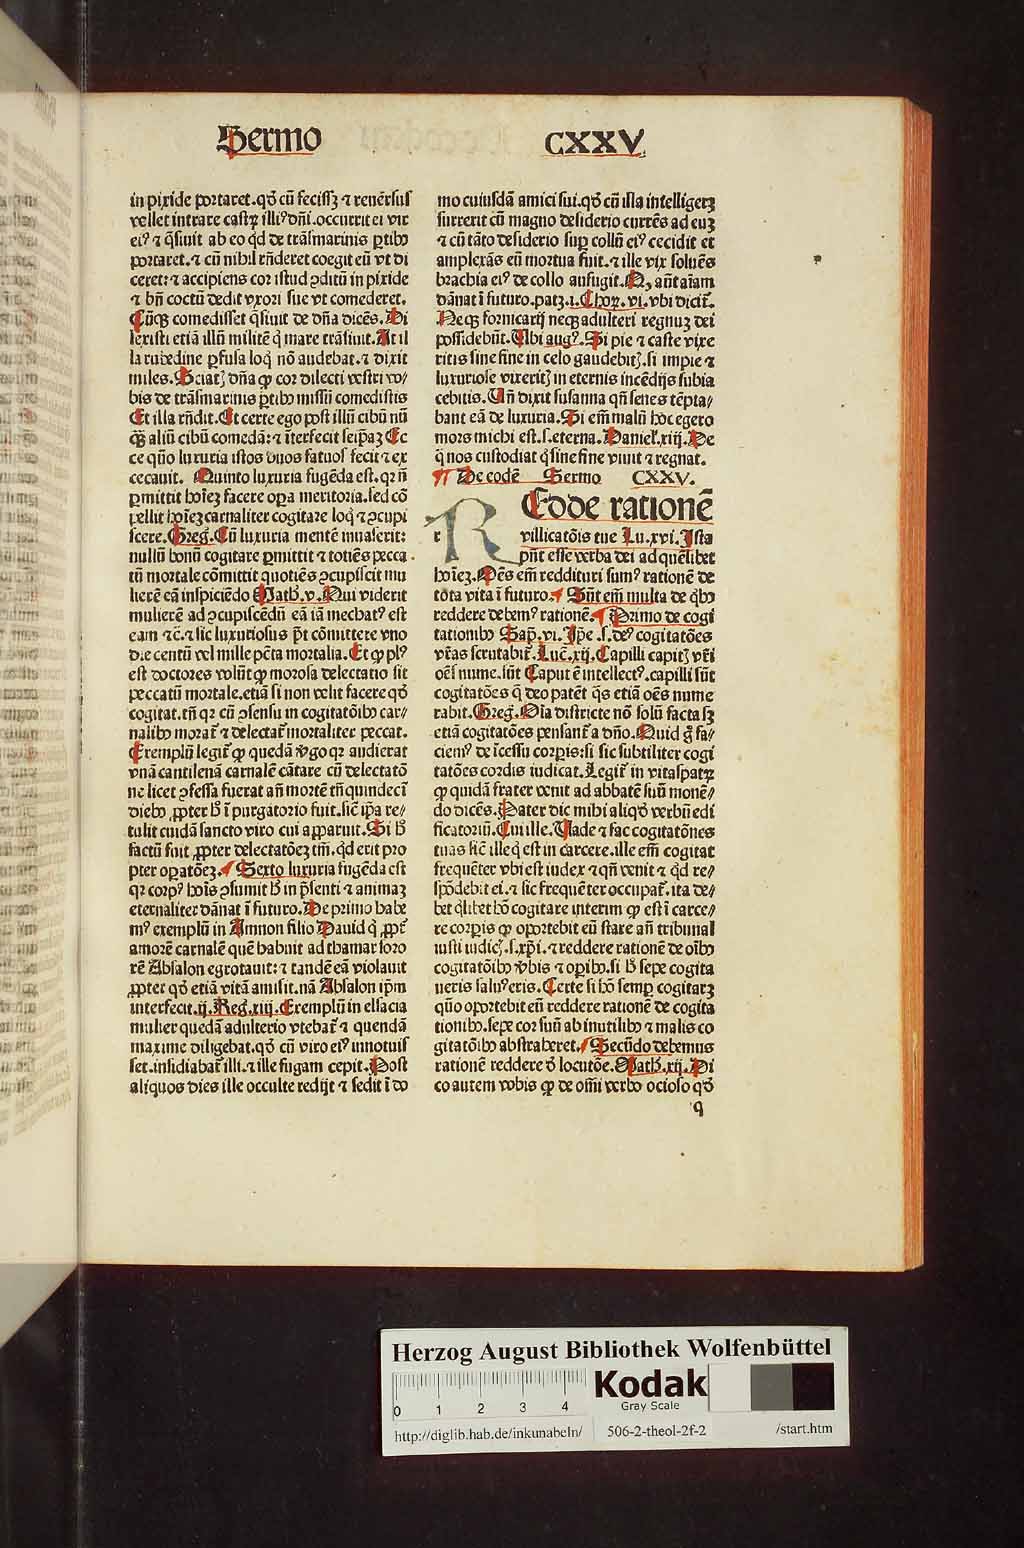 Sermo CXXV.
in pixide portaret.qḋ cū fecissꝫ ⁊ reuēsus
vellet intrare castꝝ illiꝰ dn̄i.occurrit ei vir
eiꝰ ⁊ q̄siuit ab eo qd de trāsmarinis ꝑtibꝰ
portaret.⁊ cū nihil rn̄deret coegit eū vt di
ceret:⁊ accipiens cor istud ꝯditū in pixide
⁊ bn̄ coctū dedit vxori sue vt comederet.
Cūqꝫ comedisset q̄siuit de dn̄a dicēs.Di
lexisti etiā illū militē q̇ mare trāsiuit.At il
la rubedine ꝑfusa loq̇ nō audebat.⁊ dixit
miles.Sciatꝭ dn̄a ꝙ cor dilecti vestri vo⸗
bis de trāsmarinis ꝑtibꝰ missū comedistis
Et illa rn̄dit.Et certe ego post illū cibū nū
q̄ꝫ aliū cibū comedā:⁊ īterfecit seip̄aꝫ Ec
ce quō luxuria istos duos fatuos fecit ⁊ ex
cecauit. Quinto luxuria fugēda est.qꝛ n̄
ꝑmittit hoīeꝫ facere oꝑa meritoria.sed cō
pellit hoīeꝫ carnaliter cogitare loq̇ ⁊ ꝯcupi
scere.Greg̓.Cū luxuria mentē inuaserit:
nullū bonū cogitare ꝑmittit ⁊ totiēs pecca
tū mortale cōmittit quotiēs ꝯcupiscit mu
lierē eā inspiciēdo Math̓.v.Qui viderit
mulierē ad ꝯcupiscēdū eā iā mechatꝰ est
eam ⁊c̄.⁊ sic luxuriosus pt̄ cōmittere vno
die centū vel mille pctā mortalia.Et ꝙ plꝰ
est doctores volūt ꝙ morosa delectatio sit
peccatū mortale.etiā si non velit facere qḋ
cogitat.tn̄ qꝛ cū ꝯsensu in cogitatōibꝰ car⸗
nalibꝰ morat᷑ ⁊ delectat᷑ mortaliter peccat.
Exemplū legit᷑ ꝙ quedā v̓go qꝛ audierat
vnā cantilenā carnalē cātare cū delectatō
ne licet ꝯfessa fuerat an̄ mortē tn̄ quindecī
diebꝰ ꝓpter h̓ ī purgatorio fuit.sic̄ ip̄a re⸗
tulit cuidā sancto viro cui apparuit.Si h̓
factū fuit ꝓpter delectatōeꝫ tm̄.qd erit pro
pter oꝑatōeꝫ. Sexto luxuria fugēda est
qꝛ corpꝰ hoīs ꝯsumit h̓ in p̄senti ⁊ animaꝫ
eternaliter dānat ī futuro.De primo habe
mꝰ exemplū in Amnon filio Dauid q̇ ꝓpt̓
amorē carnalē quē habuit ad thamar soro
rē Absalon egrotauit:⁊ tandē eā violauit
ꝓpter qḋ etiā vitā amisit.nā Absalon ip̄m
interfecit.ij.Reg̓.xiij.Exemplū in elsacia
mulier quedā adulterio vtebat᷑ ⁊ quendā
maxime diligebat.qḋ cū viro eiꝰ innotuis
set.insidiabat᷑ illi.⁊ ille fugam cepit.Post
aliquos dies ille occulte redijt ⁊ sedit ī do
mo cuiusdā amici sui.qḋ cū illa intelligerꝫ
surrexit cū magno desiderio currēs ad euꝫ
⁊ cū tāto desiderio suꝑ collū eiꝰ cecidit et
amplexās eū mortua fuit.⁊ ille vix soluēs
brachia eiꝰ de collo aufugit. aūt aīam
dānat ī futuro.patꝫ.i.Choꝝ.vi.vbi dicit᷑.
Neqꝫ fornicarij neqꝫ adulteri regnuꝫ dei
possidebūt.Ubi augꝰ.Si pie ⁊ caste vixe
ritis sine fine in celo gaudebitꝭ.si impie ⁊
luxuriose vixeritꝭ in eternis incēdijs subia
cebitis.Un̄ dixit susanna qn̄ senes tēpta⸗
bant eā de luxuria.Si em̄ malū hoc egero
mors michi est.s.eterna.Daniel̓.xiij.De
q̇ nos custodiat q̇ sine fine viuit ⁊ regnat.
¶ De eodē Sermo CXXV.
REdde rationē
villicatōis tue Lu.xvi.Ista
pn̄t esse verba dei ad quēlibet
hoīeꝫ.Oēs em̄ reddituri sumꝰ rationē de
tota vita ī futuro. Sūt em̄ multa de q̇bꝰ
reddere debemꝰ rationē. Primo de cogi
tationibꝰ Sap̄.vi.Ip̄e .s.deꝰ cogitatōes
vr̄as scrutabit᷑.Luc̄.xij.Capilli capitꝭ vr̄i
oēs nume.sūt Caput ē intellectꝰ.capilli sūt
cogitatōes q̄ deo patēt q̄s etiā oēs nume
rabit.Greg̓.Oīa districte nō solū facta sꝫ
etiā cogitatōes pensant᷑ a dn̄o.Quid g̊ fa⸗
ciemꝰ de īcessu corꝑis:si sic subtiliter cogi
tatōes cordis iudicat.Legit᷑ in vitaspatꝝ
ꝙ quidā frater venit ad abbatē suū monē⸗
do dicēs.Pater dic mihi aliqḋ verbū edi
ficatoriū.Cui ille.Uade ⁊ fac cogitatōnes
tuas sic̄ ille q̇ est in carcere.ille em̄ cogitat
frequēter vbi est iudex ⁊ qn̄ venit ⁊ qd re⸗
spōdebit ei.⁊ sic frequēter occupat᷑.ita de⸗
bet q̇libet hō cogitare interim ꝙ est ī carce⸗
re corꝑis ꝙ oportebit eū stare an̄ tribunal
iusti iudicꝭ.s.xp̄i.⁊ reddere rationē de oībꝰ
cogitatōibꝰ v̓bis ⁊ oꝑibꝰ.si h̓ sepe cogita
ueris saluꝰeris.Certe si hō semꝑ cogitarꝫ
quō oportebit eū reddere rationē de cogita
tionibꝰ.sepe cor suū ab inutilibꝰ ⁊ malis co
gitatōibꝰ abstraheret. Secūdo debemus
rationē reddere d̓ locutōe.Math̓.xij.Di
co autem vobis ꝙ de om̄i verbo ocioso qḋ
q
Herzog August Bibliothek Wolfenbüttel
0 1 2 3 4
Kodak
Gray Scale
http://diglib.hab.de/inkunabeln/ 506-2-theol-2f-2 /start.htm